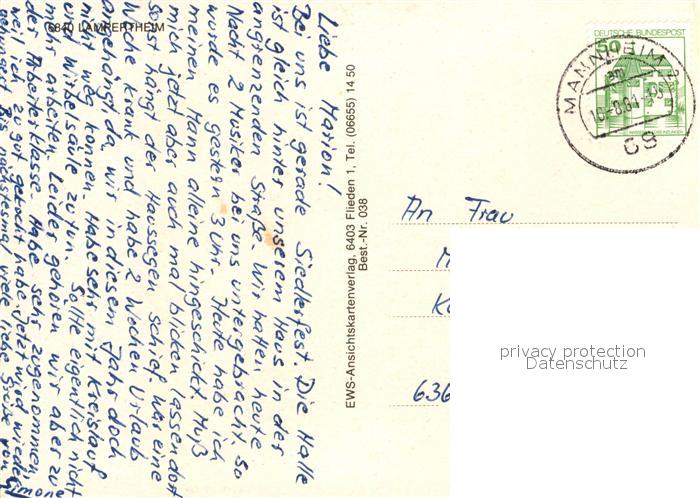 6840 LAMPERTHEIM
Liebe Marion!
Bei uns ist gerade Siedlerfest. Die Halle
ist gleich hinter unserem Haus in der
angrenzenden Straße. Wir hatten heute
Nacht 2 Musiker bei uns untergebracht. So
wurde es gestern 3 Uhr. Heute habe ich
meinen Mann alleine hingeschickt. Muß
mich jetzt aber auch mal blicken lassen dort
sonst hängt der Haussegen schief. War eine
Woche krank und habe 2 Wochen Urlaub
angehängt da wir in diesem Jahr doch
nicht weg können. Habe sehr mit Kreislauf
und Wirbelsäule zu tun. Sollte eigentlich nicht
mehr arbeiten. Leider gehören wir aber zu
der Arbeiterklasse. Habe sehr zugenommen,
weil ich zu gut gekocht habe. Jetzt wird wieder
gehungert. Bis nächstesmal viele liebe Grüße von
EWS-Ansichtskartenverlag, 6403 Flieden 1, Tel. (06655) 14 50
Best.-Nr. 038
DEUTSCHE BUNDESPOST
50
MANNHEIM
68
An Frau
636
privacy protection
Datenschutz